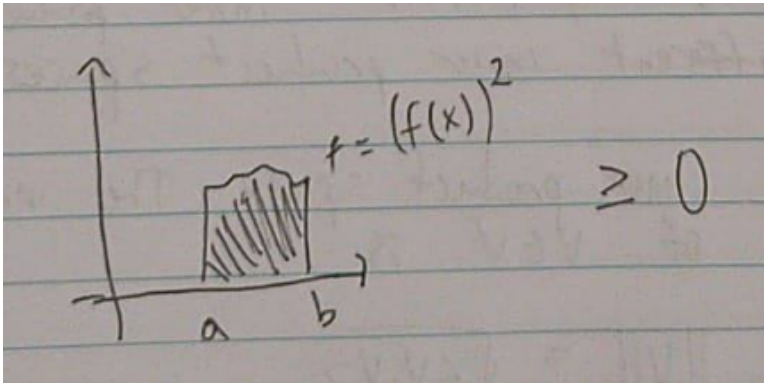 f = (f(x))²
≥ 0
a
b